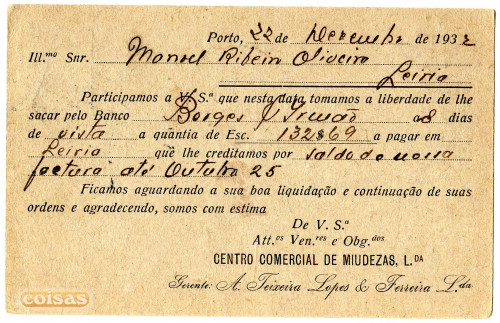 Porto, 22 de Dezembro de 1932
Ill.mo Snr. Manoel Ribeiro Oliveira
Leiria
Participamos a V. S.ª que nesta data tomamos a liberdade de lhe
sacar pelo Banco Borges & Irmão a 8 dias
de vista a quantia de Esc. 132$69 a pagar em
Leiria que lhe creditamos por saldo de nossa
factura até Outubro 25
Ficamos aguardando a sua boa liquidação e continuação de suas
ordens e agradecendo, somos com estima
De V. S.ª
Att.os Ven.res e Obg.dos
CENTRO COMERCIAL DE MIUDEZAS, L.DA
Gerente: A. Teixeira Lopes & Ferreira L.da
coisas